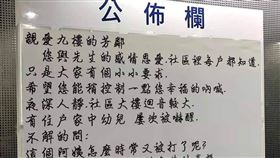 公佈欄
親愛九樓的芳鄰
您與先生的感情恩愛,社區裡每戶都知道.
只是大家有個小小要求.
希望您能稍控制一點您幸福的吶喊.
夜深人靜.社區大樓迴音較大.
有住戶家中幼兒 屢次被嚇醒.
不解的問:
這個阿姨怎麼時常又被打了呢?